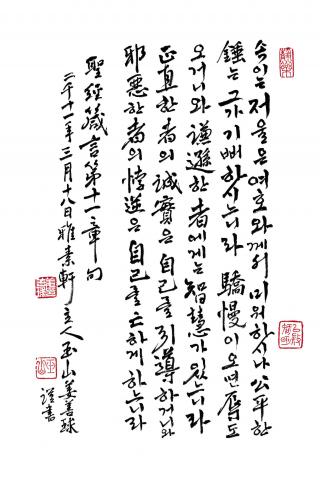 속이는 저울은 여호와께서 미워하시나 公平한
錘는 그가 기뻐하시느니라 驕慢이 오면 辱도
오거니와 謙遜한 者에게는 智慧가 있느니라
正直한 者의 誠實은 自己를 引導하거니와
邪惡한 者의 悖逆은 自己를 亡하게 하느니라
聖經箴言第十一章 句
二千十一年三月十八日 雅素軒主人 玉山 姜善球
謹書